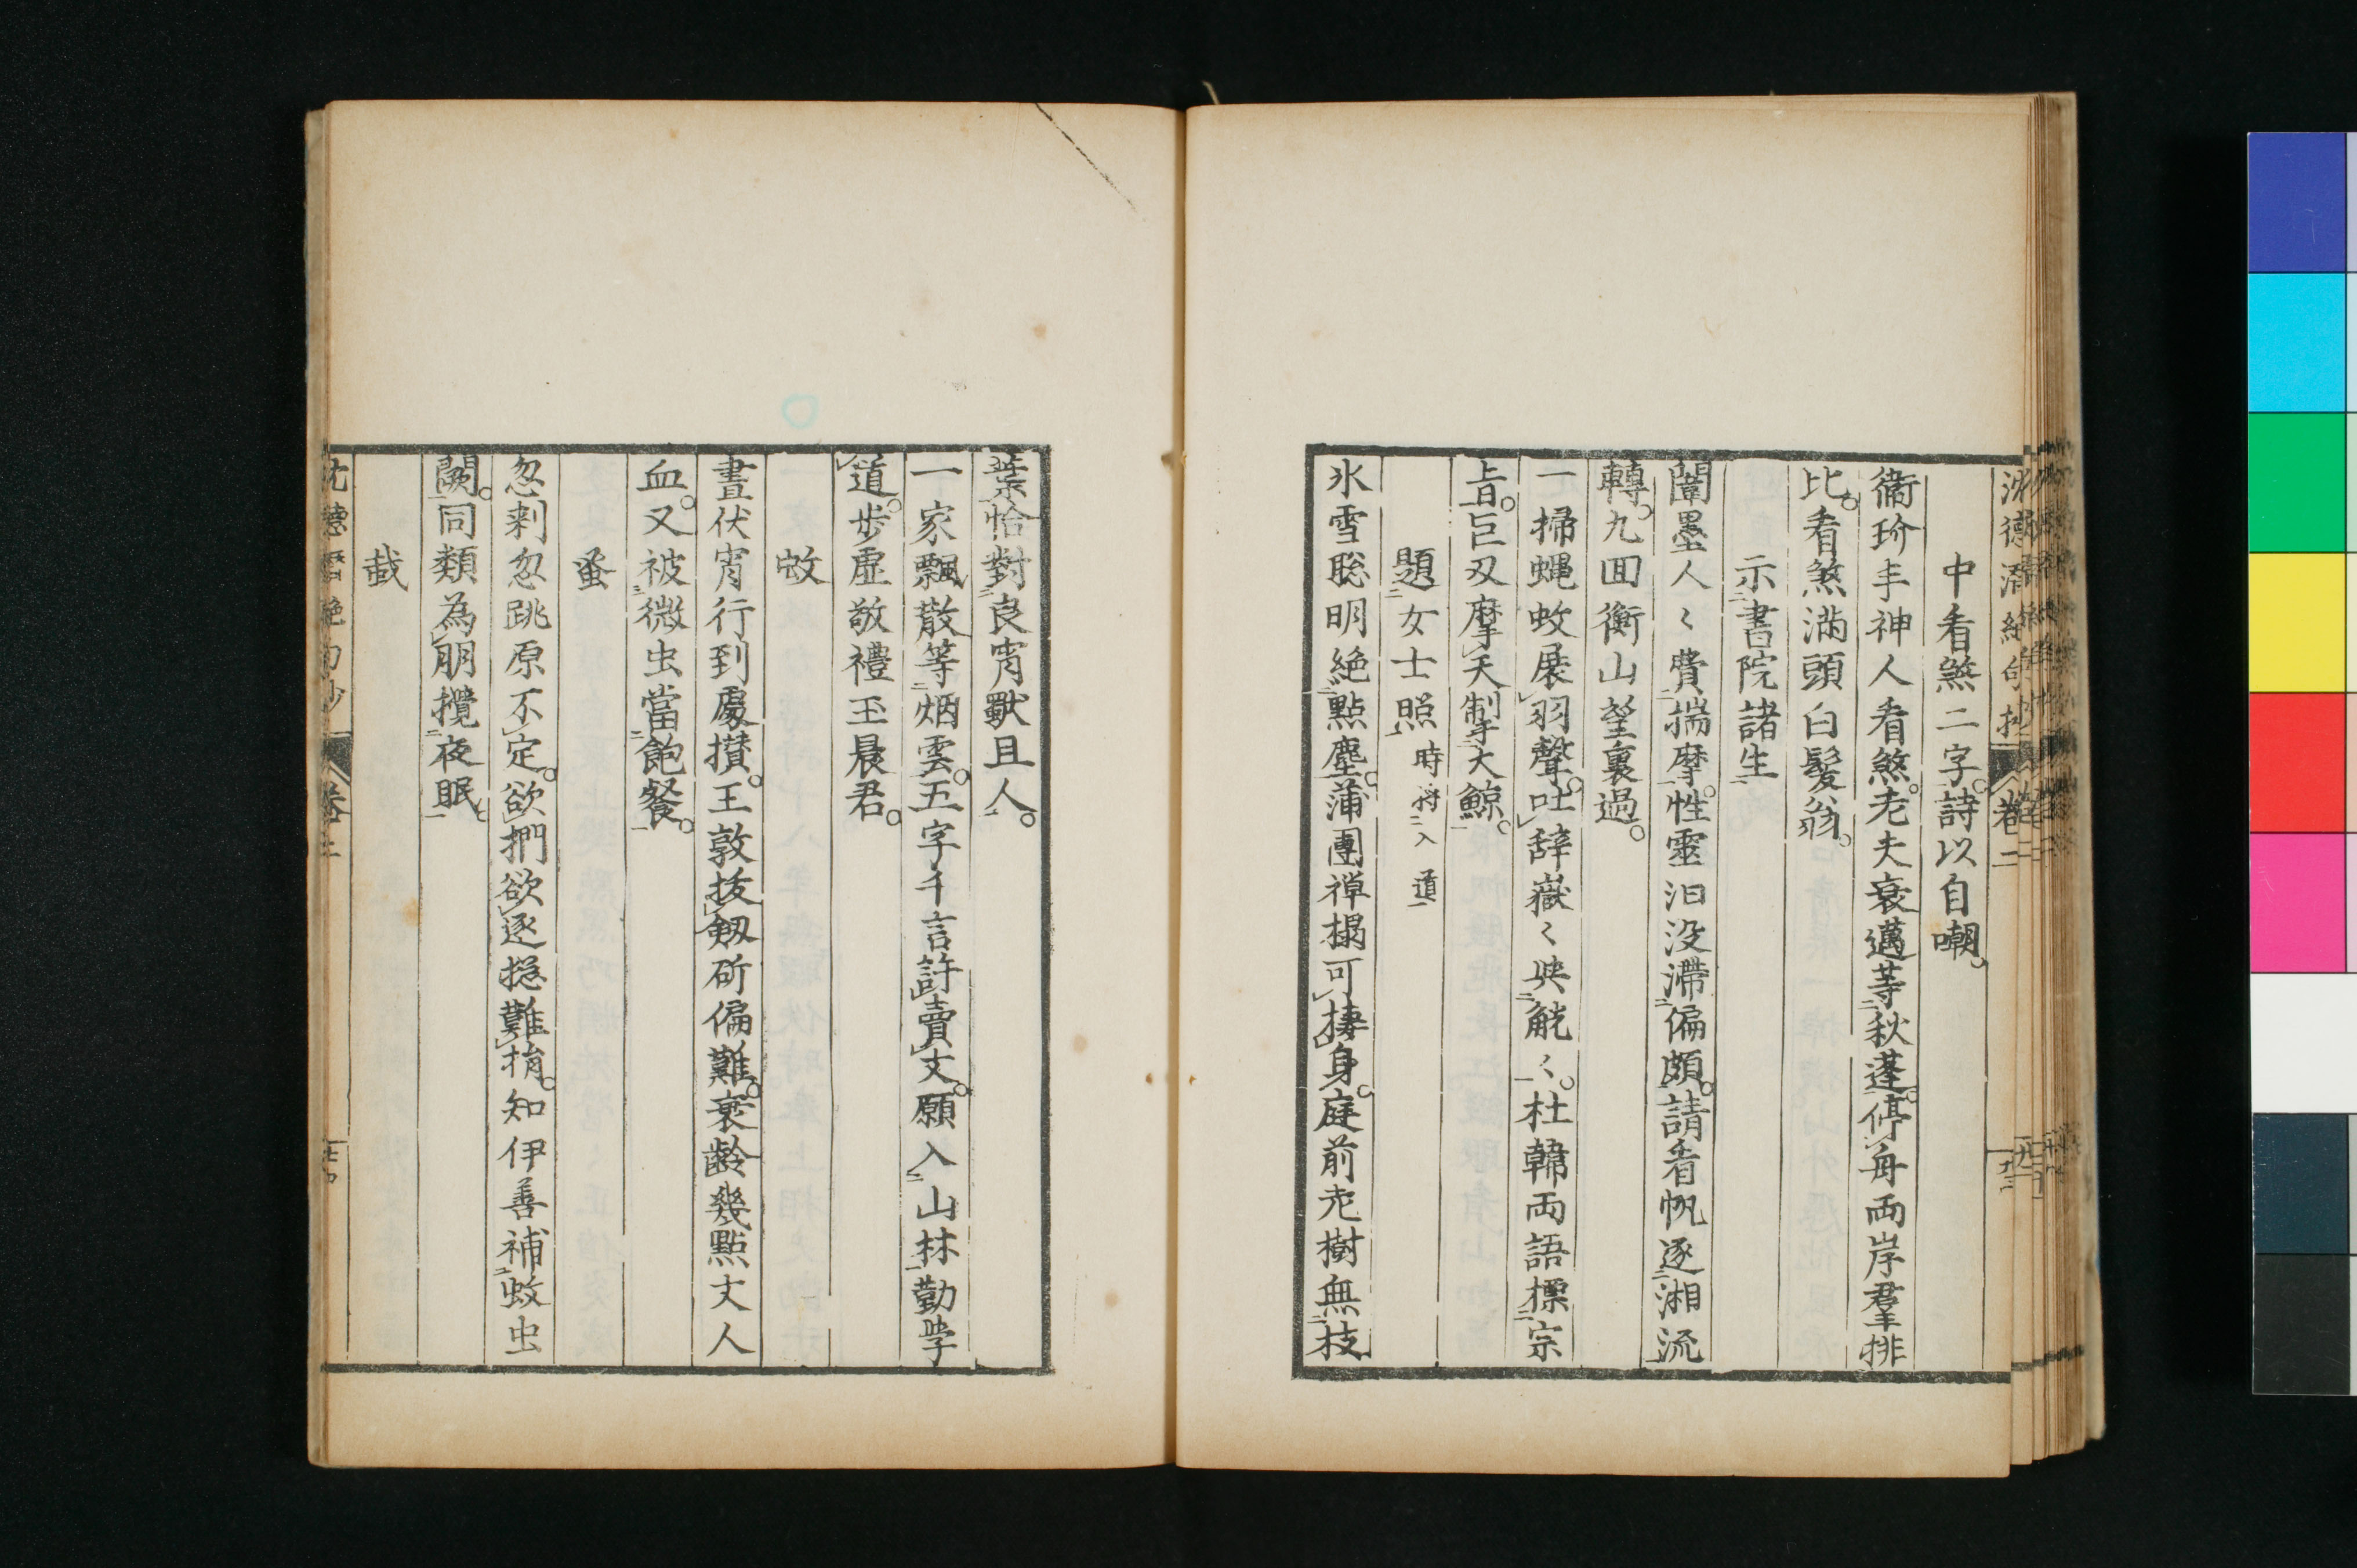 沈德潛絕句抄 卷二
中看煞二字。詩以自嘲。
衞玠丰神人看煞。老夫衰邁等秋蓬。停舟兩岸羣排
比。看煞滿頭白髮翁。
示書院諸生
闈墨人〻費揣摩。性靈汩没滯偏頗。請看帆逐湘流
轉。九回衡山望裏過。
一掃蠅蚊展羽聲。吐辭嶽〻與觥〻。杜韓兩語標宗
旨。巨刄摩天制大鯨。
題女士照 時将入道
氷雪聡明絶點塵。蒲團禅榻可捿身。庭前老樹無枝
葉。恰對良宵獸且人。
一家飄散等烟雲。五字千言許賣文。願入山林勤学
道。步虛敬禮玉晨君。
蚊
晝伏宵行到處攅。王敦抜劔斫偏難。衰齡幾點丈人
血。又被微虫當飽餐。
蚤
忽刺忽跳原不定。欲捫欲逐摠難捎。知伊善補蚊虫
闕。同類為朋攪夜眠
蛓
沈德潛絶句抄 卷二